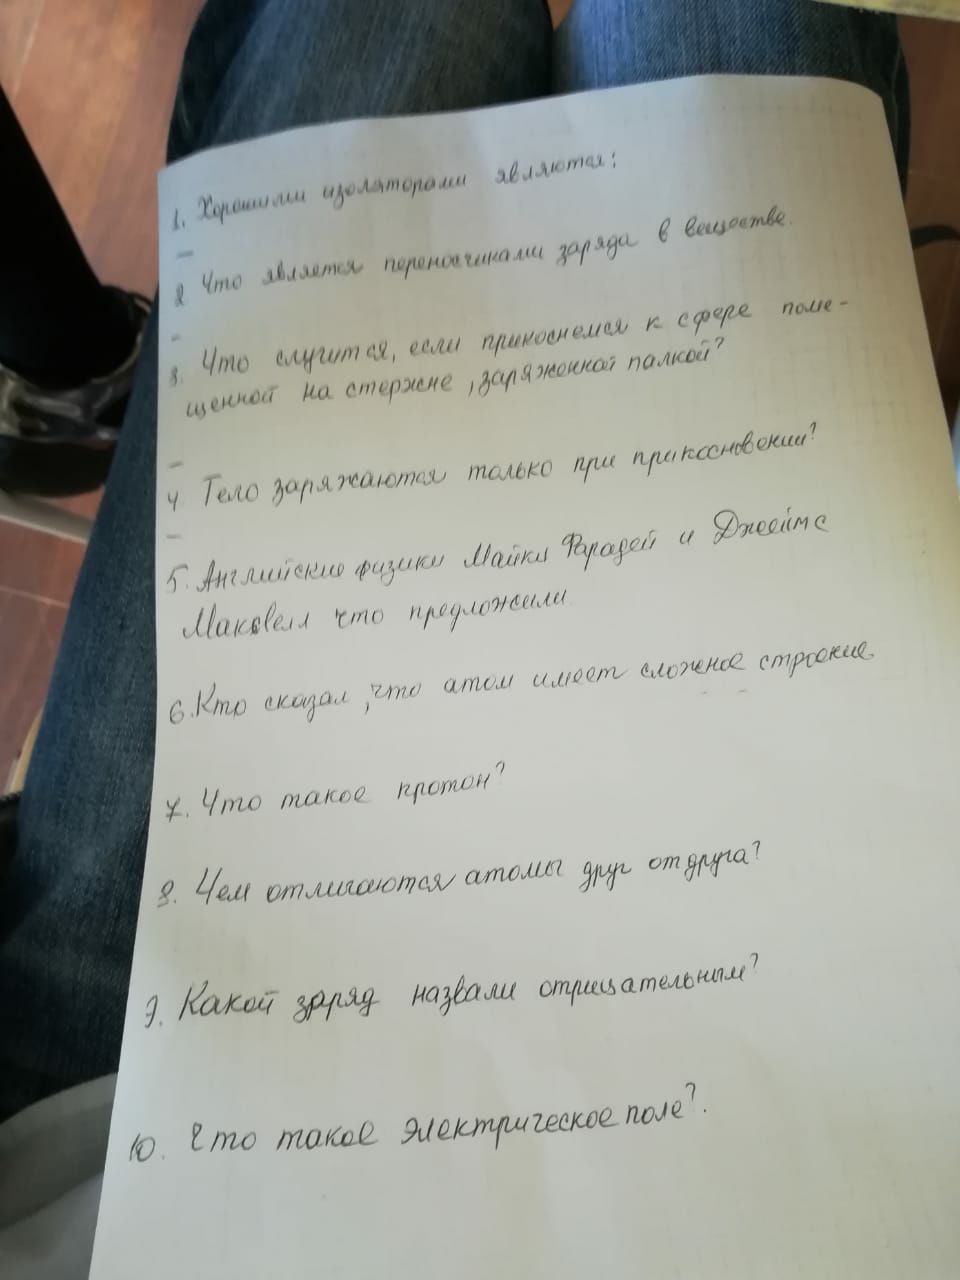 1. Хорошими изоляторами являются:
2 Что является переносчиками заряда в веществе.
3. Что случится, если прикоснемся к сфере поме-
щенной на стержне, заряженной палкой?
4 Тело заряжаются только при прикосновении?
5. Английские физики Майкл Фарадей и Джеймс
Максвелл что предложили.
6. Кто сказал, что атом имеет сложное строение
7. Что такое протон?
8. Чем отличаются атомы друг от друга?
9. Какой заряд назвали отрицательным?
10. Что такое электрическое поле?.